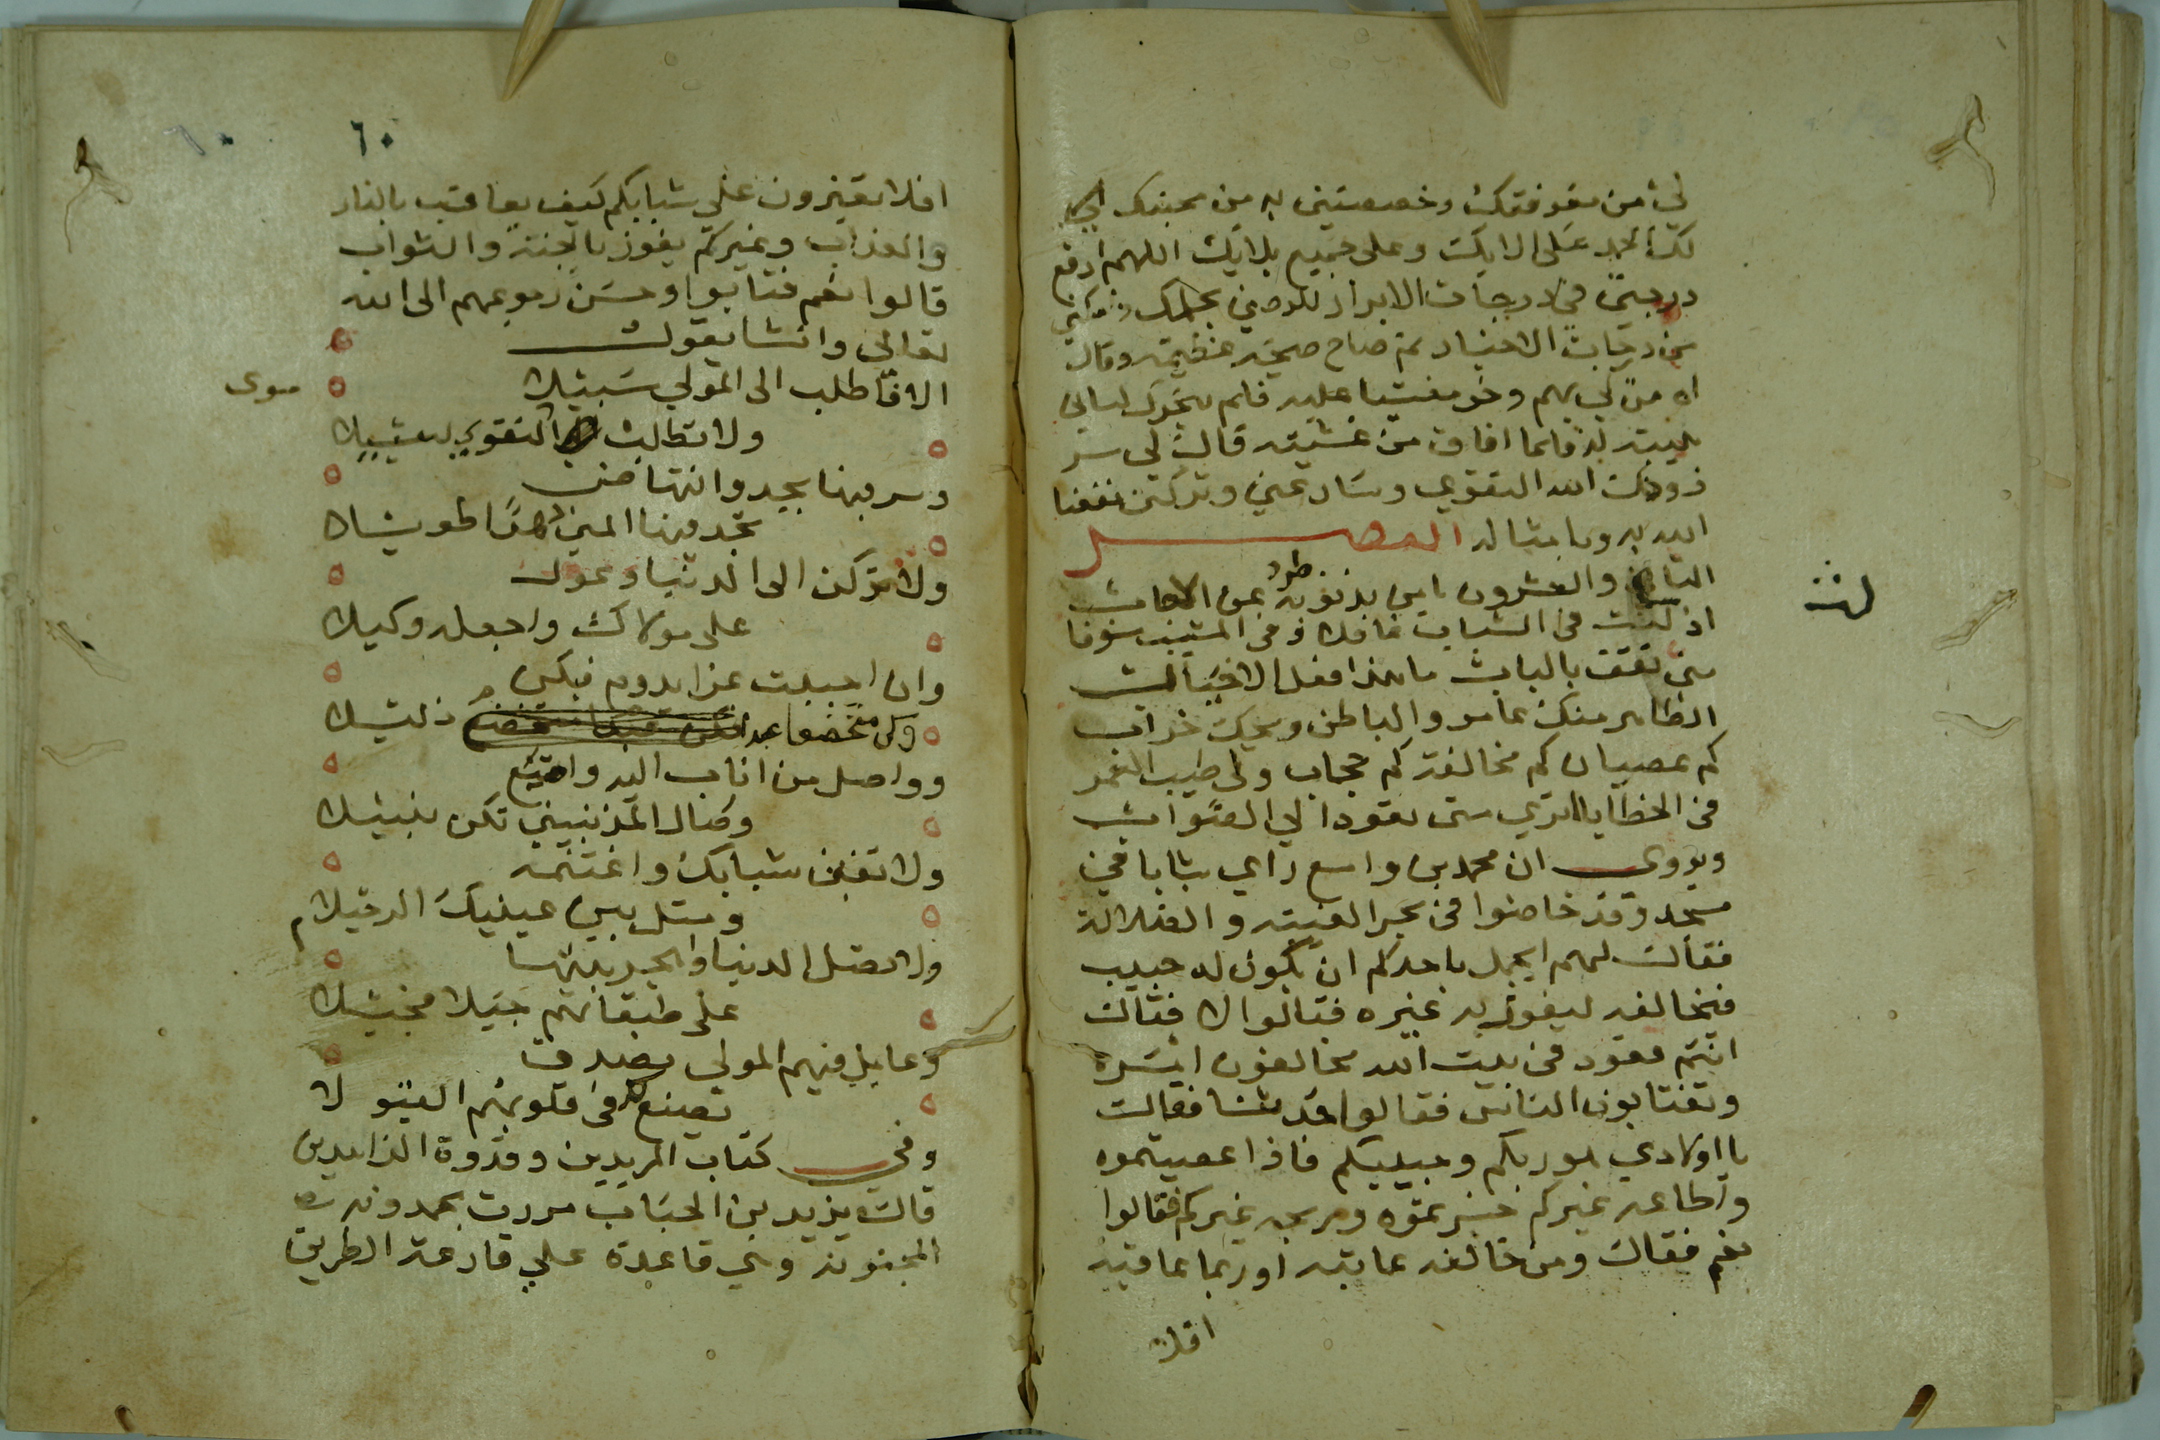 لي من معرفتك وخصصتني به من محبتك
لك الحمد على الايك وعلى جميع بلايك اللهم ارفع
درجتي في درجات الابرار للرضي بحكمك
من درجات الاخيار ثم صاح صيحة عظيمة وقال
اه من لي بهم وخر مغشيا عليه فلم يتحرك
هيبة له فلما افاق من غشيته قال لي سر
زودك الله التقوى وسار عني وتركني نفعنا
الله به وبامثاله الفصل
والعشرون يا من بذنوبه طرد عن الاحباب
اذ كنت في الشباب غافلا وفي المشيب سوفا
متى تقف بالباب ما هذا فعل الاحباب
الظاهر منك عامر والباطن ويحك خراب
كم عصيان كم مخالفة كم حجاب ولى طيب العمر
في الخطايا ترى متى تعود الى الصواب
ويروى ان محمد بن واسع راى شبابا في
مسجد وقد خاضوا في بحر الغيبة والضلالة
فقال لهم ايجمل باحدكم ان يكون له حبيب
فيخالفه ليفوز به غيره فقالوا لا فقال
انتم قعود في بيت الله تخالفون
وتغتابون الناس فقالوا قد تبنا فقال
يا اولادي هو ربكم وحبيبكم فاذا عصيتموه
واطاعه غيركم خسرتموه وربحه غيركم فقالوا
نعم فقال ومن خالفه عاتبه او ربما عاقبه
افلا
٦٠
افلا تغيرون على شبابكم كيف يعاقب بالنار
والعذاب وغيركم يفوز بالجنة والثواب
قالوا نعم فتابوا وحسن رجوعهم الى الله
تعالى وانشا يقول
الا فاطلب الى المولى سبيلا
سوى
ولا تطلب التقوى بديلا
وسر فيها بجد وانتهاض
تجد فيها المنى طويلا
ولا تركن الى الدنيا وعول
على مولاك واجعله وكيلا
وان احببت عزا يدوم فبكي
وكن متخضعا عبدا ذليلا
وواصل من اناب اليه واقنع
وخل المذنبين تكن نبيلا
ولا تفني شبابك واغتنمه
ومثل بين عينيك الرحيلا
ولا تصل الدنيا واهجر بنيها
على طبقاتهم جيلا فجيلا
وعامل فيهم المولى بصدق
تضع لك في قلوبهم القبولا
وفي كتاب المريدين وقدوة الزاهدين
قال يزيد بن الحباب مررت بحمدونة
المجنونة وهي قاعدة على قارعة الطريق